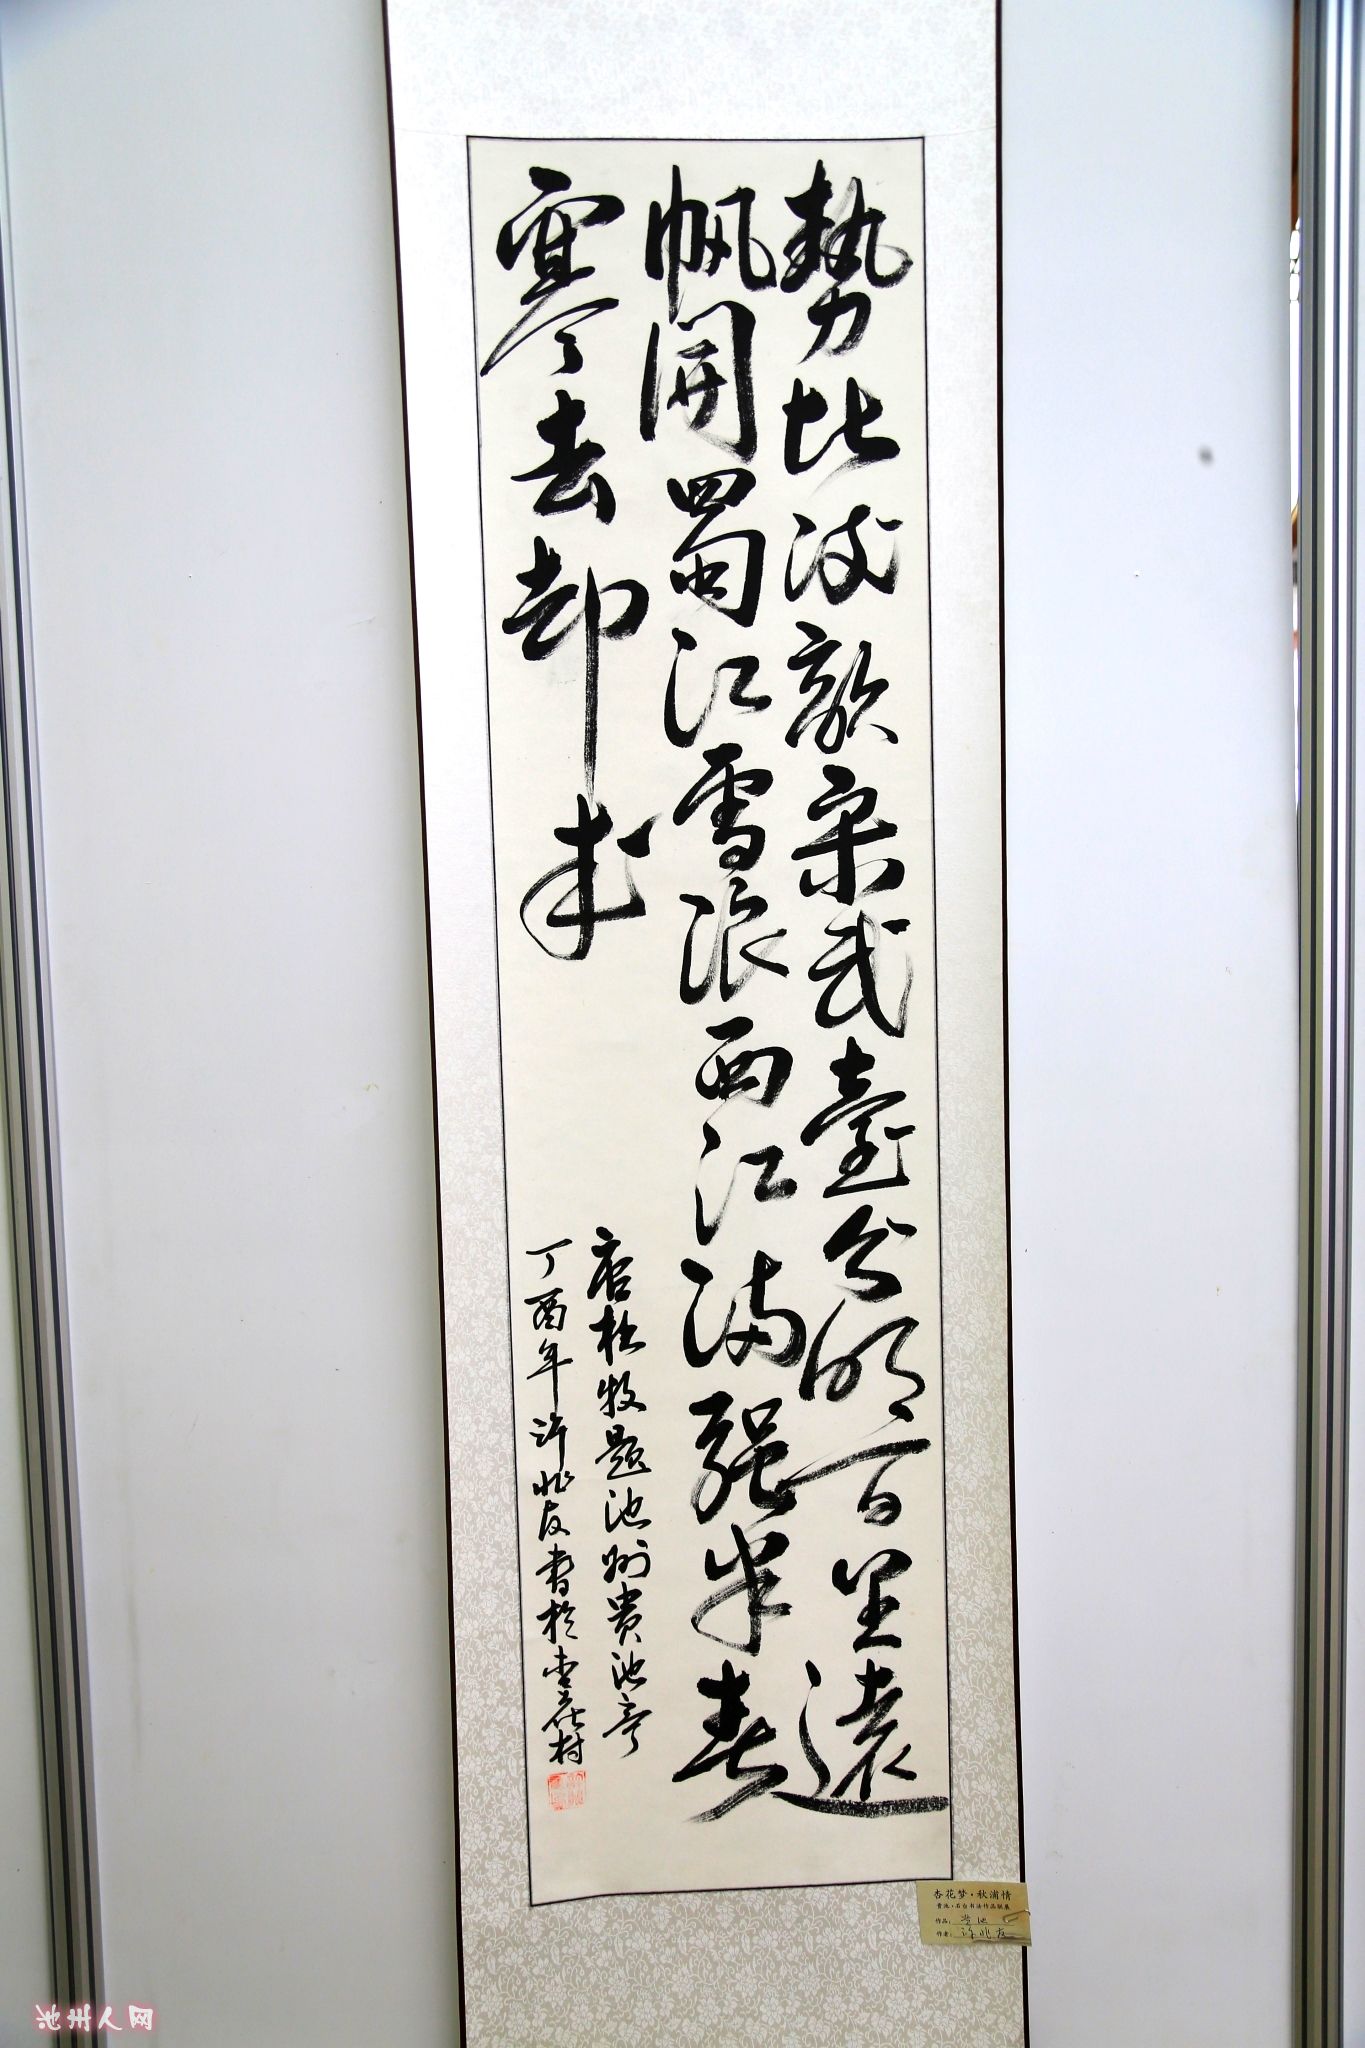 勢比凌歊宋武臺分明百里遠
帆開蜀江雪浪西江滿強半春
寒去却來
唐杜牧題池州貴池亭
丁酉年許兆友書於杏花村
杏花梦·秋浦情
贵池·石台书法作品联展
作品：贵池
作者：许兆友
池州人网